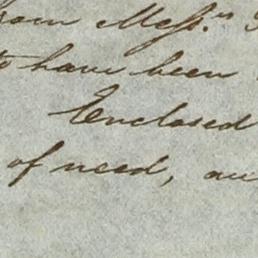 from Mess.rs
to have been
Enclosed
of need,